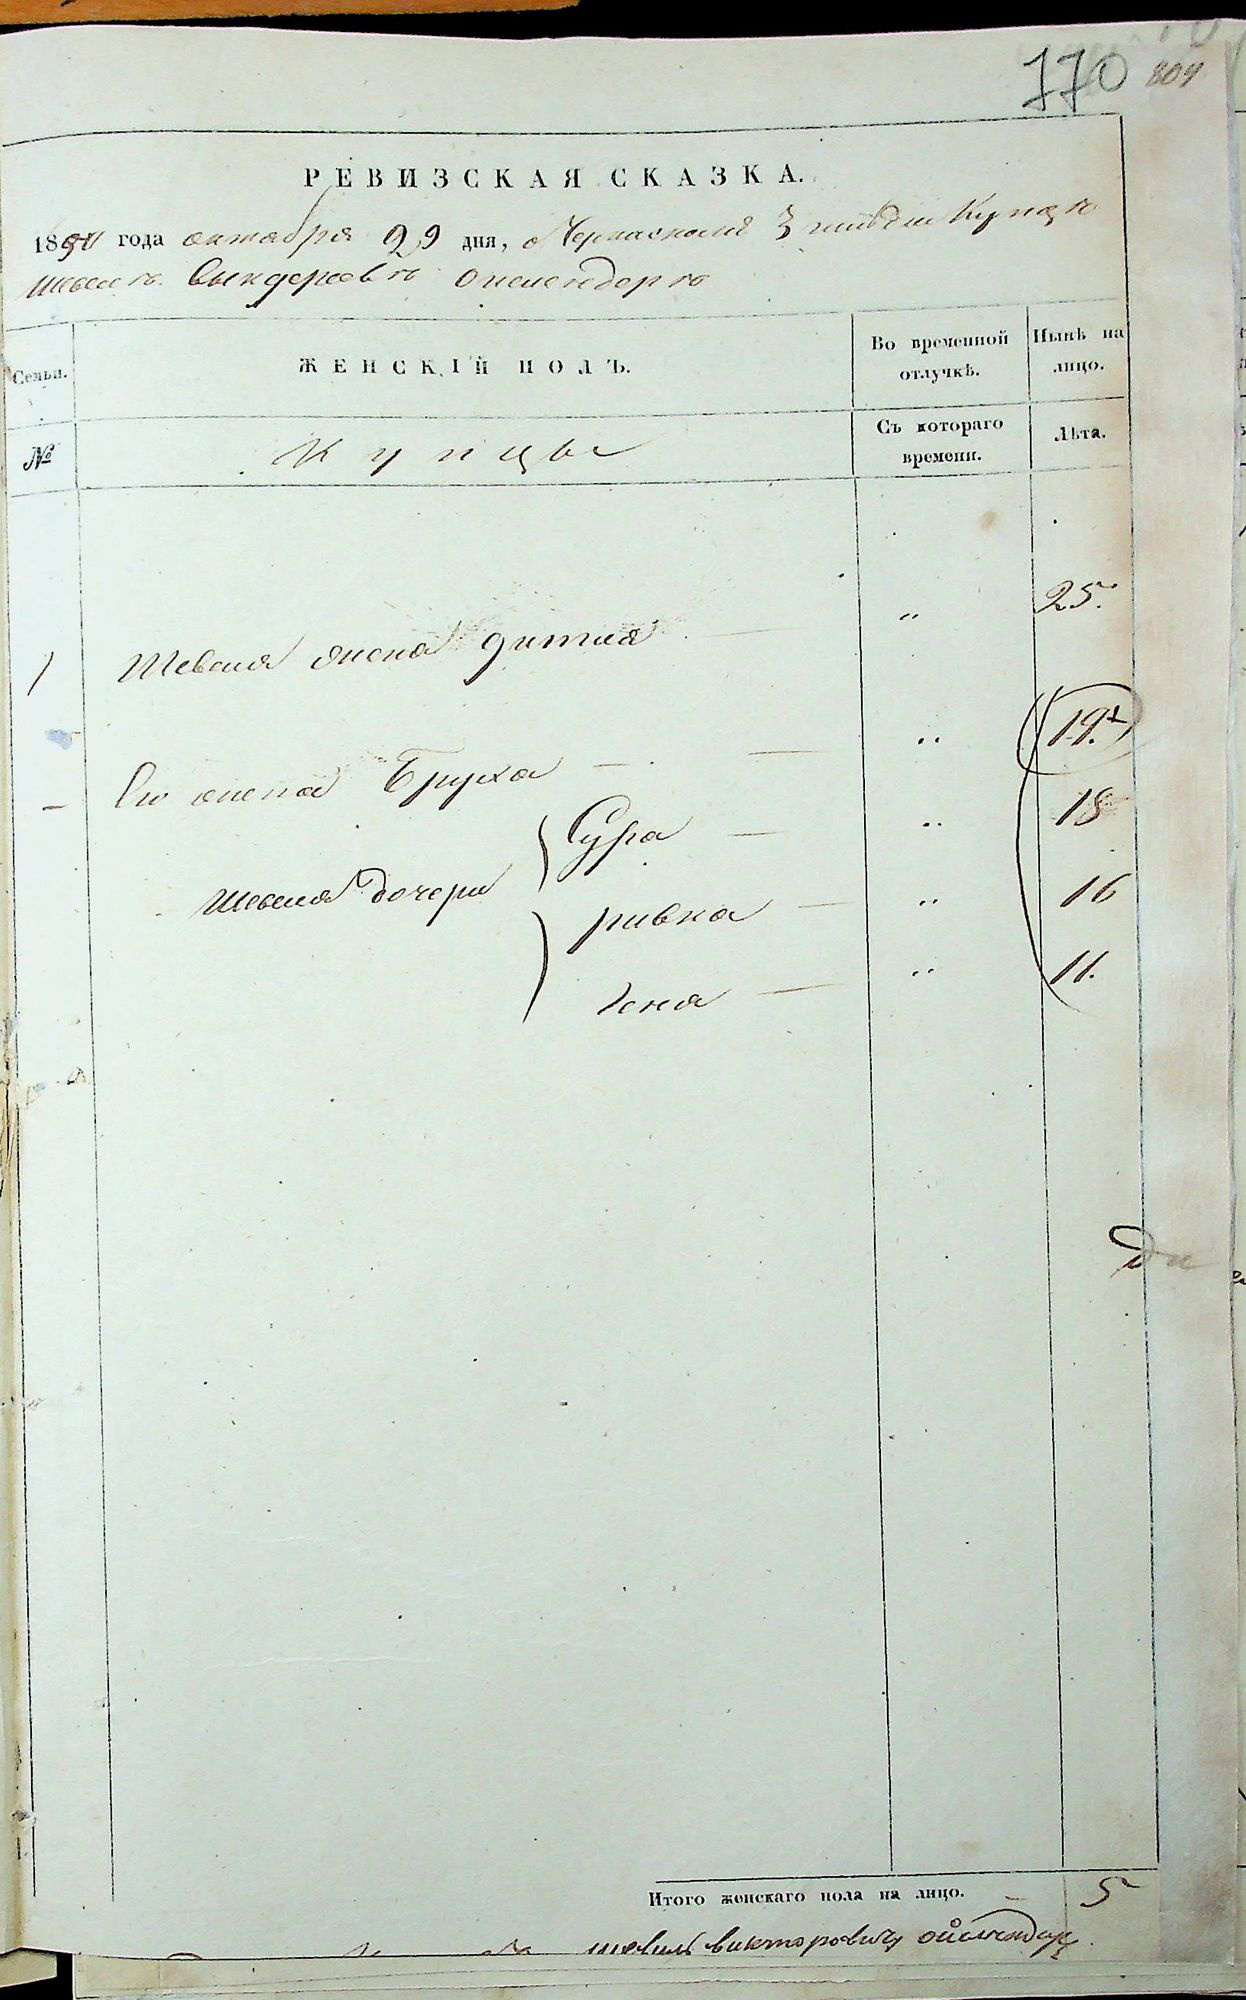 770 804
РЕВИЗСКАЯ СКАЗКА.
1850 года октября 29 дня, о Черкаскомъ 3 гильдіи Купцѣ
Шевелѣ
Семьи. ЖЕНСКІЙ ПОЛЪ. Во временной отлучкѣ. Нынѣ на лицо.
№ Купцы Съ котораго времени. Лѣта.
1 Шевеля жена " 25.
- Его жена Бруха — — " 19.
Шевеля дочери Сура — " 18
Ривка — " 16
— " 11.
Итого женскаго пола на лицо. — 5
шевиль викторовичъ